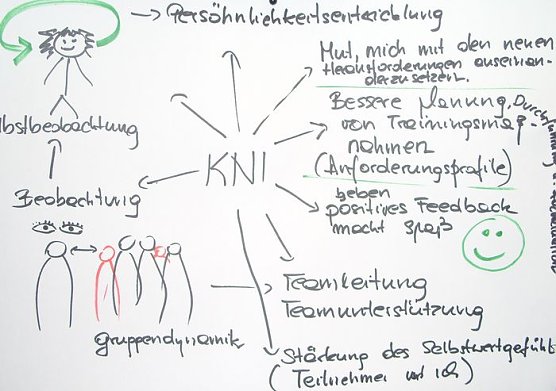 Persöhnlichkeitsentwicklung
Mut, mich mit den neuen
Herausforderungen auseinan-
derzusetzen.
Bessere Planung, Durchführung
von Trainingsmaß-
nahmen
(Anforderungsprofile)
geben
positives Feedback
macht Spaß
KNI
lbstbeobachtung
Beobachtung
gruppendynamik
Teamleitung
Teamunterstützung
Stärkung des Selbstwertgefühl
(Teilnehmer und ich)